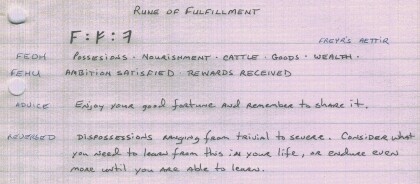 RUNE OF FULFILLMENT
ᚠ : ᚠ : ꟻ
FREYR'S AETTIR
FEOH POSSESIONS · NOURISHMENT · CATTLE · GOODS · WEALTH ·
FEHU AMBITION SATISFIED · REWARDS RECEIVED
ADVICE Enjoy your good fortune and remember to share it.
REVERSED DISPOSSESSIONS ranging from trivial to severe. Consider what
you need to learn from this in your life, or endure even
more until you are able to learn.